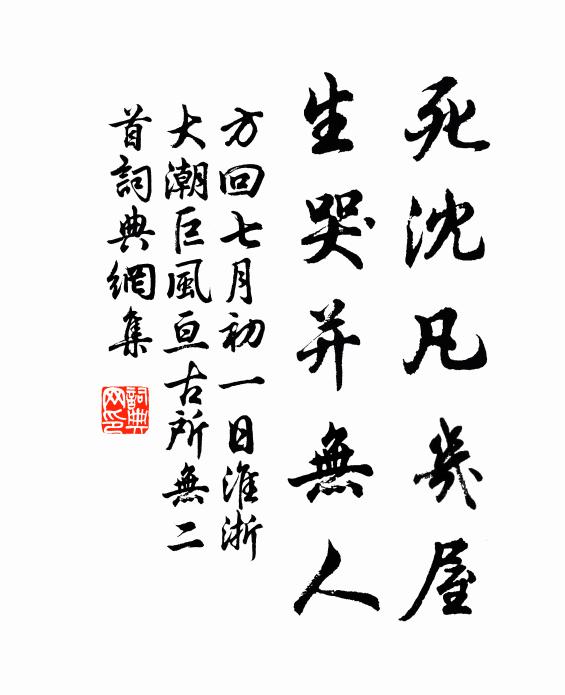 死沈凡幾屋
生哭并無人
方回七月初一日淮浙
大潮巨風亘古所無二
首詞典網集
詞典網印